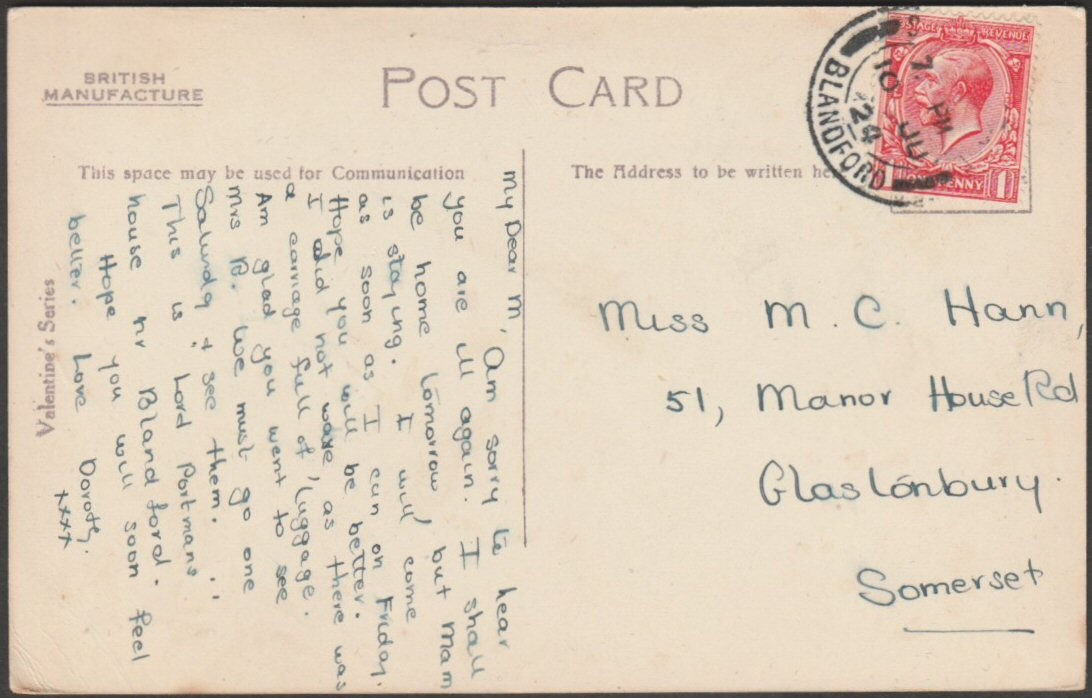 BRITISH
MANUFACTURE
POST CARD
This space may be used for Communication
The Address to be written he
Valentine's Series
POSTAGE REVENUE
ONE PENNY 1
BLANDFORD
7 PM
10 JU
24
My Dear M, Am sorry to hear
you are ill again. I shall
be home tomorrow but Mam
is staying. I will come
as soon as I can on Friday.
Hope you will be better.
I did not wave, as there was
a carriage full of luggage.
Am glad you went to see
Mrs B. We must go one
Saturdy & see them.
This is Lord Portmans
house nr Blandford.
Hope you will soon feel
better. Love Dorothy.
xxxx
Miss M. C. Hann,
51, Manor House Rd
Glastonbury.
Somerset